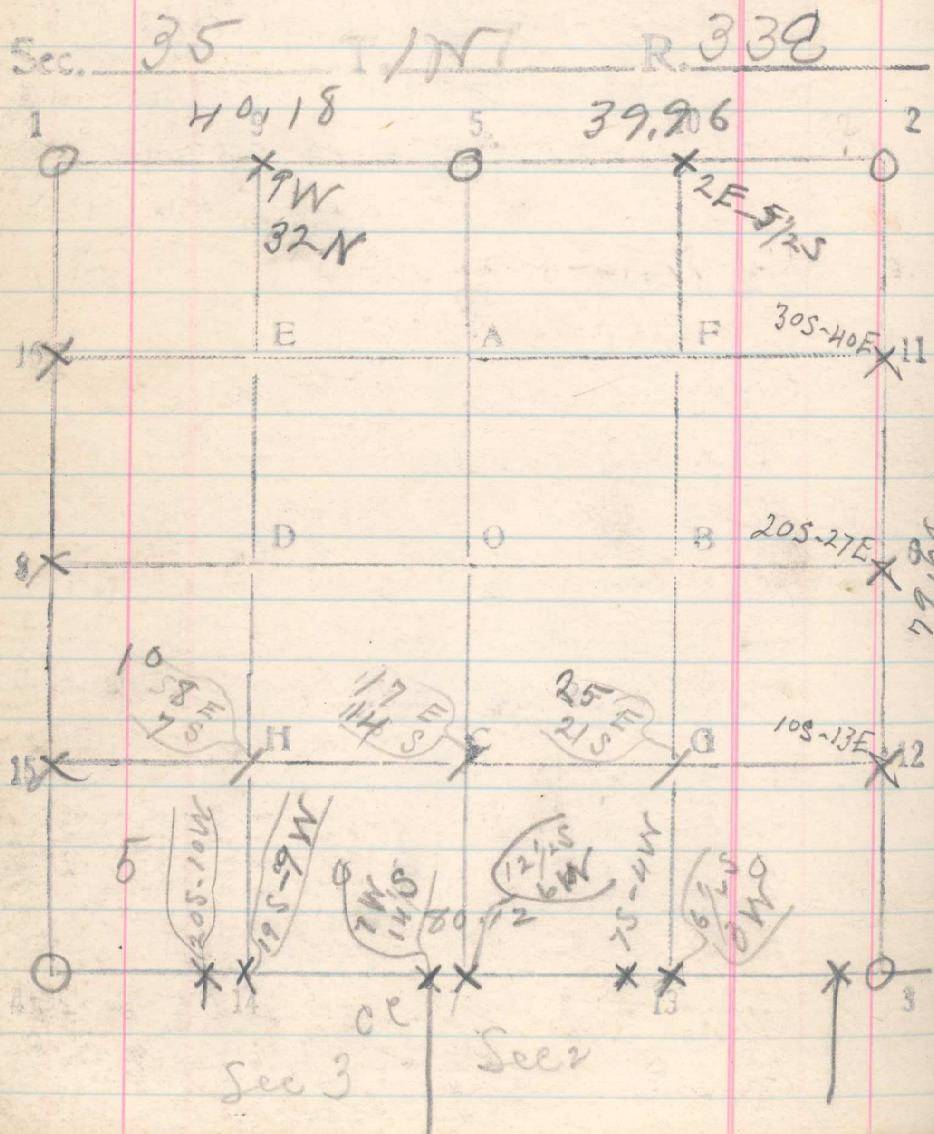 Sec. 35 T. 1N R. 33E
1 40.18 9 5 39.96 10 2
9W
32N
2E-5½S
30S-40E
16 E A F 11
20S-27E
8 D O B
79,
10
8E
7S
17E
14S
25E
21S
10S-13E
15 H C G 12
5
20S-10W
19S-9W
7W
14S
80.12
12½S
6W
7S-4W
6½S
3W
4 14 13 3
CC
Sec 3 Sec 2